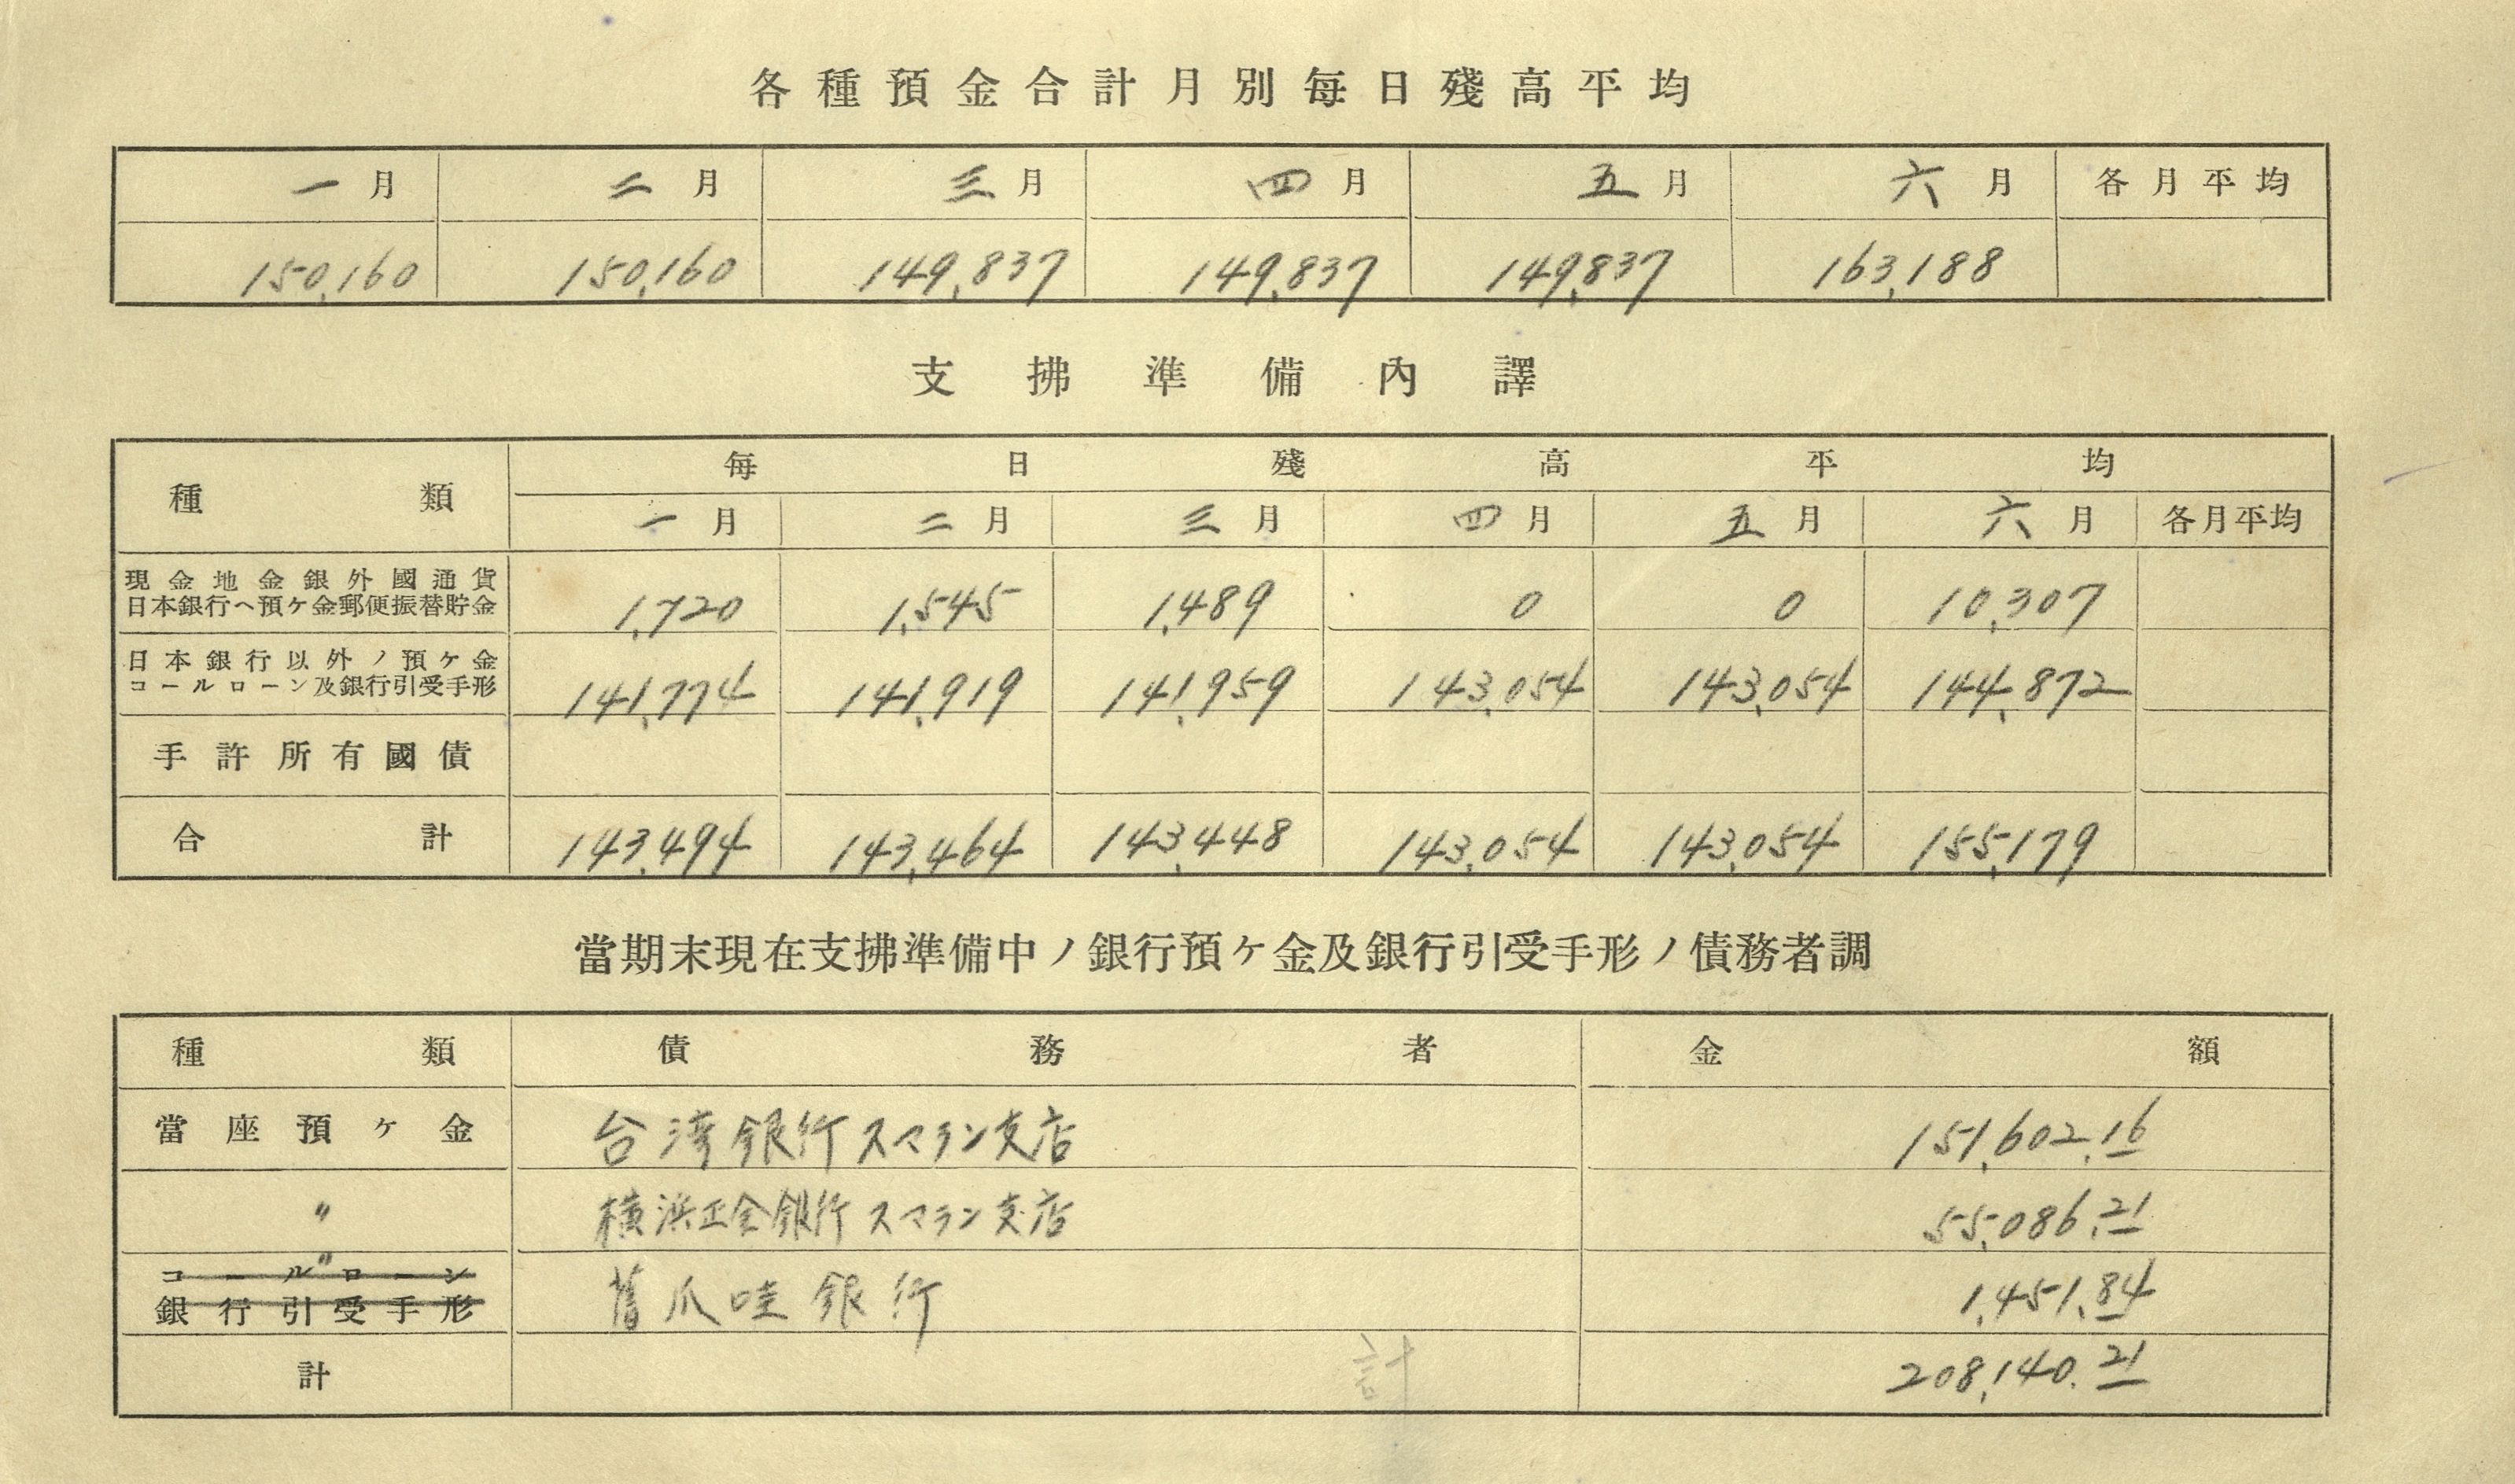 各種預金合計月別每日殘高平均
一月 二月 三月 四月 五月 六月 各月平均
150,160 150,160 149,837 149,837 149,837 163,188
支拂準備內譯
種類 每日殘高平均
一月 二月 三月 四月 五月 六月 各月平均
現金地金銀外國通貨
日本銀行ヘ預ケ金郵便振替貯金 1,720 1,545 1,489 0 0 10,307
日本銀行以外ノ預ケ金
コールローン及銀行引受手形 141,774 141,919 141,959 143,054 143,054 144,872
手許所有國債
合計 143,494 143,464 143,448 143,054 143,054 155,179
當期末現在支拂準備中ノ銀行預ケ金及銀行引受手形ノ債務者調
種類 債務者 金額
當座預ケ金 台湾銀行スマラン支店 151,602.16
〃 横浜正金銀行スマラン支店 55,086.21
〃
コールローン
銀行引受手形 旧爪哇銀行 1,451.84
計 計 208,140.21